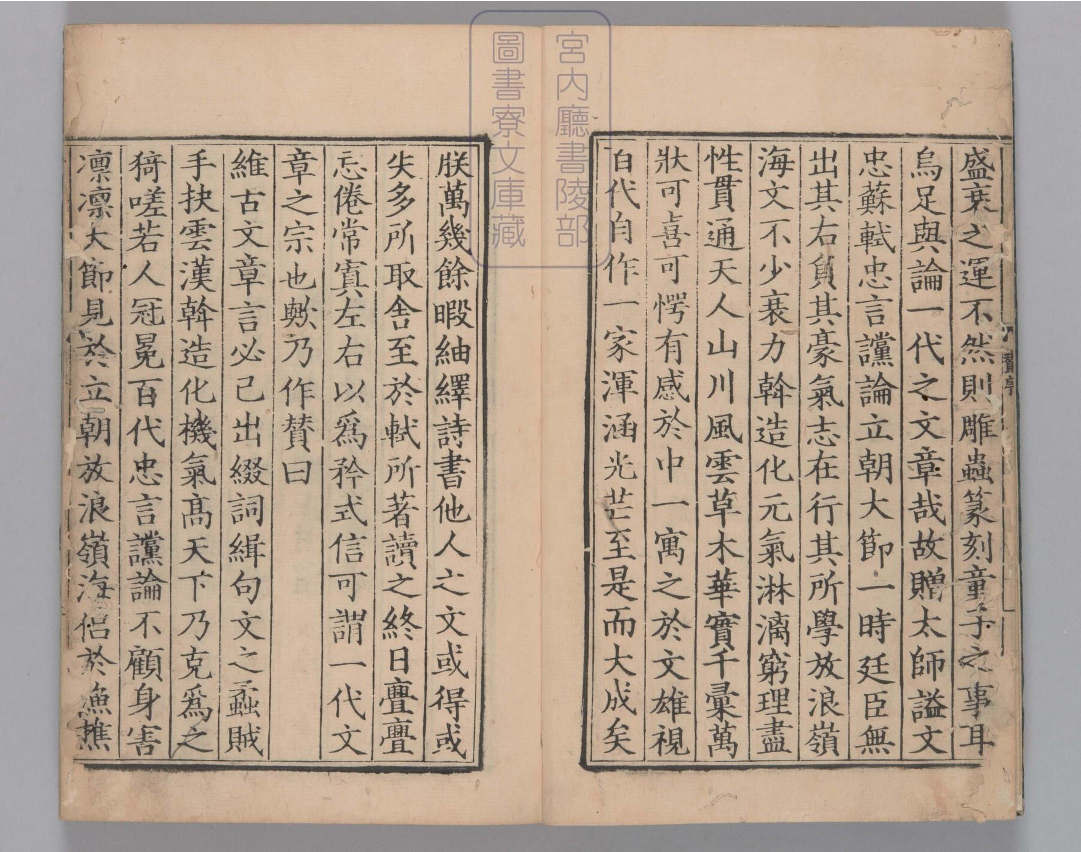 盛衰之運不然則雕蟲篆刻童子之事耳
烏足與論一代之文章哉故贈太師謚文
忠蘇軾忠言讜論立朝大節一時廷臣無
出其右負其豪氣志在行其所學放浪嶺
海文不少衰力斡造化元氣淋漓窮理盡
性貫通天人山川風雲草木華實千彙萬
狀可喜可愕有感於中一寓之於文雄視
百代自作一家渾涵光芒至是而大成矣
朕萬幾餘暇紬繹詩書他人之文或得或
失多所取舍至於軾所著讀之終日亹亹
忘倦常寘左右以爲矜式信可謂一代文
章之宗也歟乃作賛曰
維古文章言必己出綴詞緝句文之蟊賊
手抉雲漢斡造化機氣髙天下乃克爲之
猗嗟若人冠冕百代忠言讜論不顧身害
凛凛大節見於立朝放浪嶺海侣於漁樵
宮内廳書陵部
圖書寮文庫藏